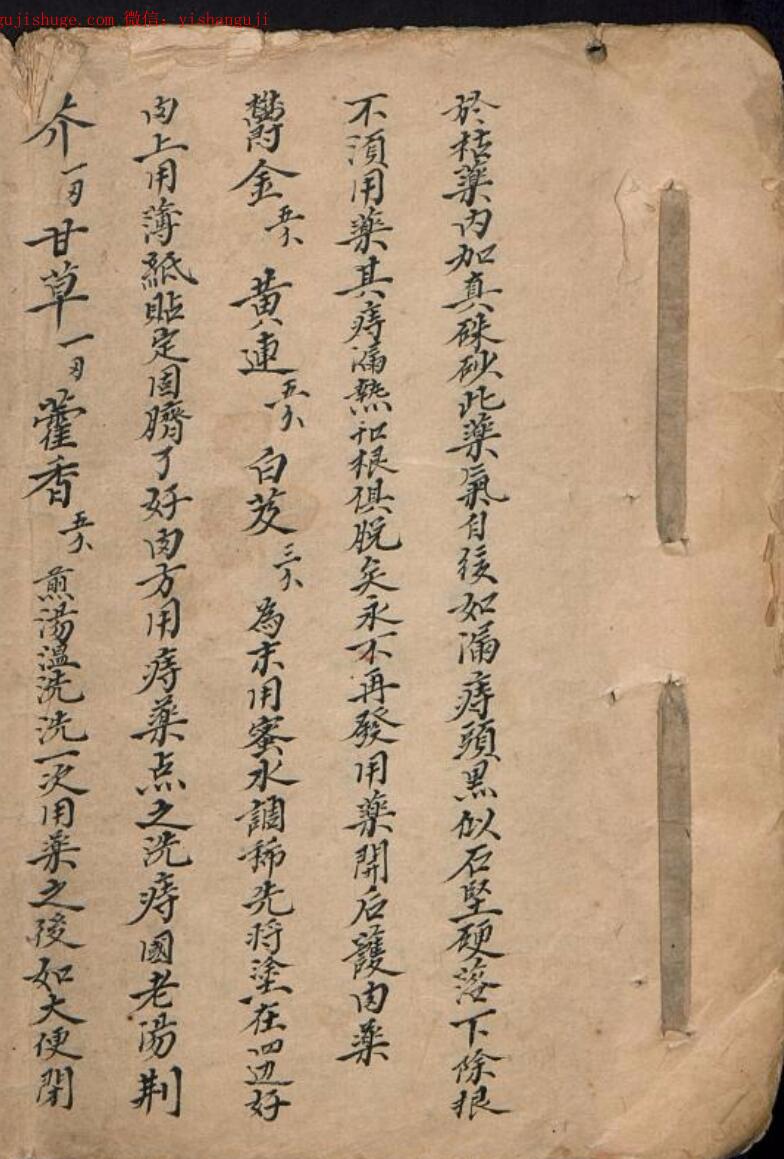 gujishuge.com 微信: yishanguji
於枯藥内加真硃砂此藥氣自緩如漏痔頭黑似石堅硬落下除根
不須用藥其痔漏熱和根俱脫矣永不再發用藥開后護肉藥
欝金五个黄連五个白芨三个為末用蜜水調稀先将塗在四边好
肉上用薄紙貼定固臍了好肉方用痔藥点之洗痔國老湯荆
芥一刄甘草一刄藿香五个煎湯温洗洗一次用藥之後如大便閉